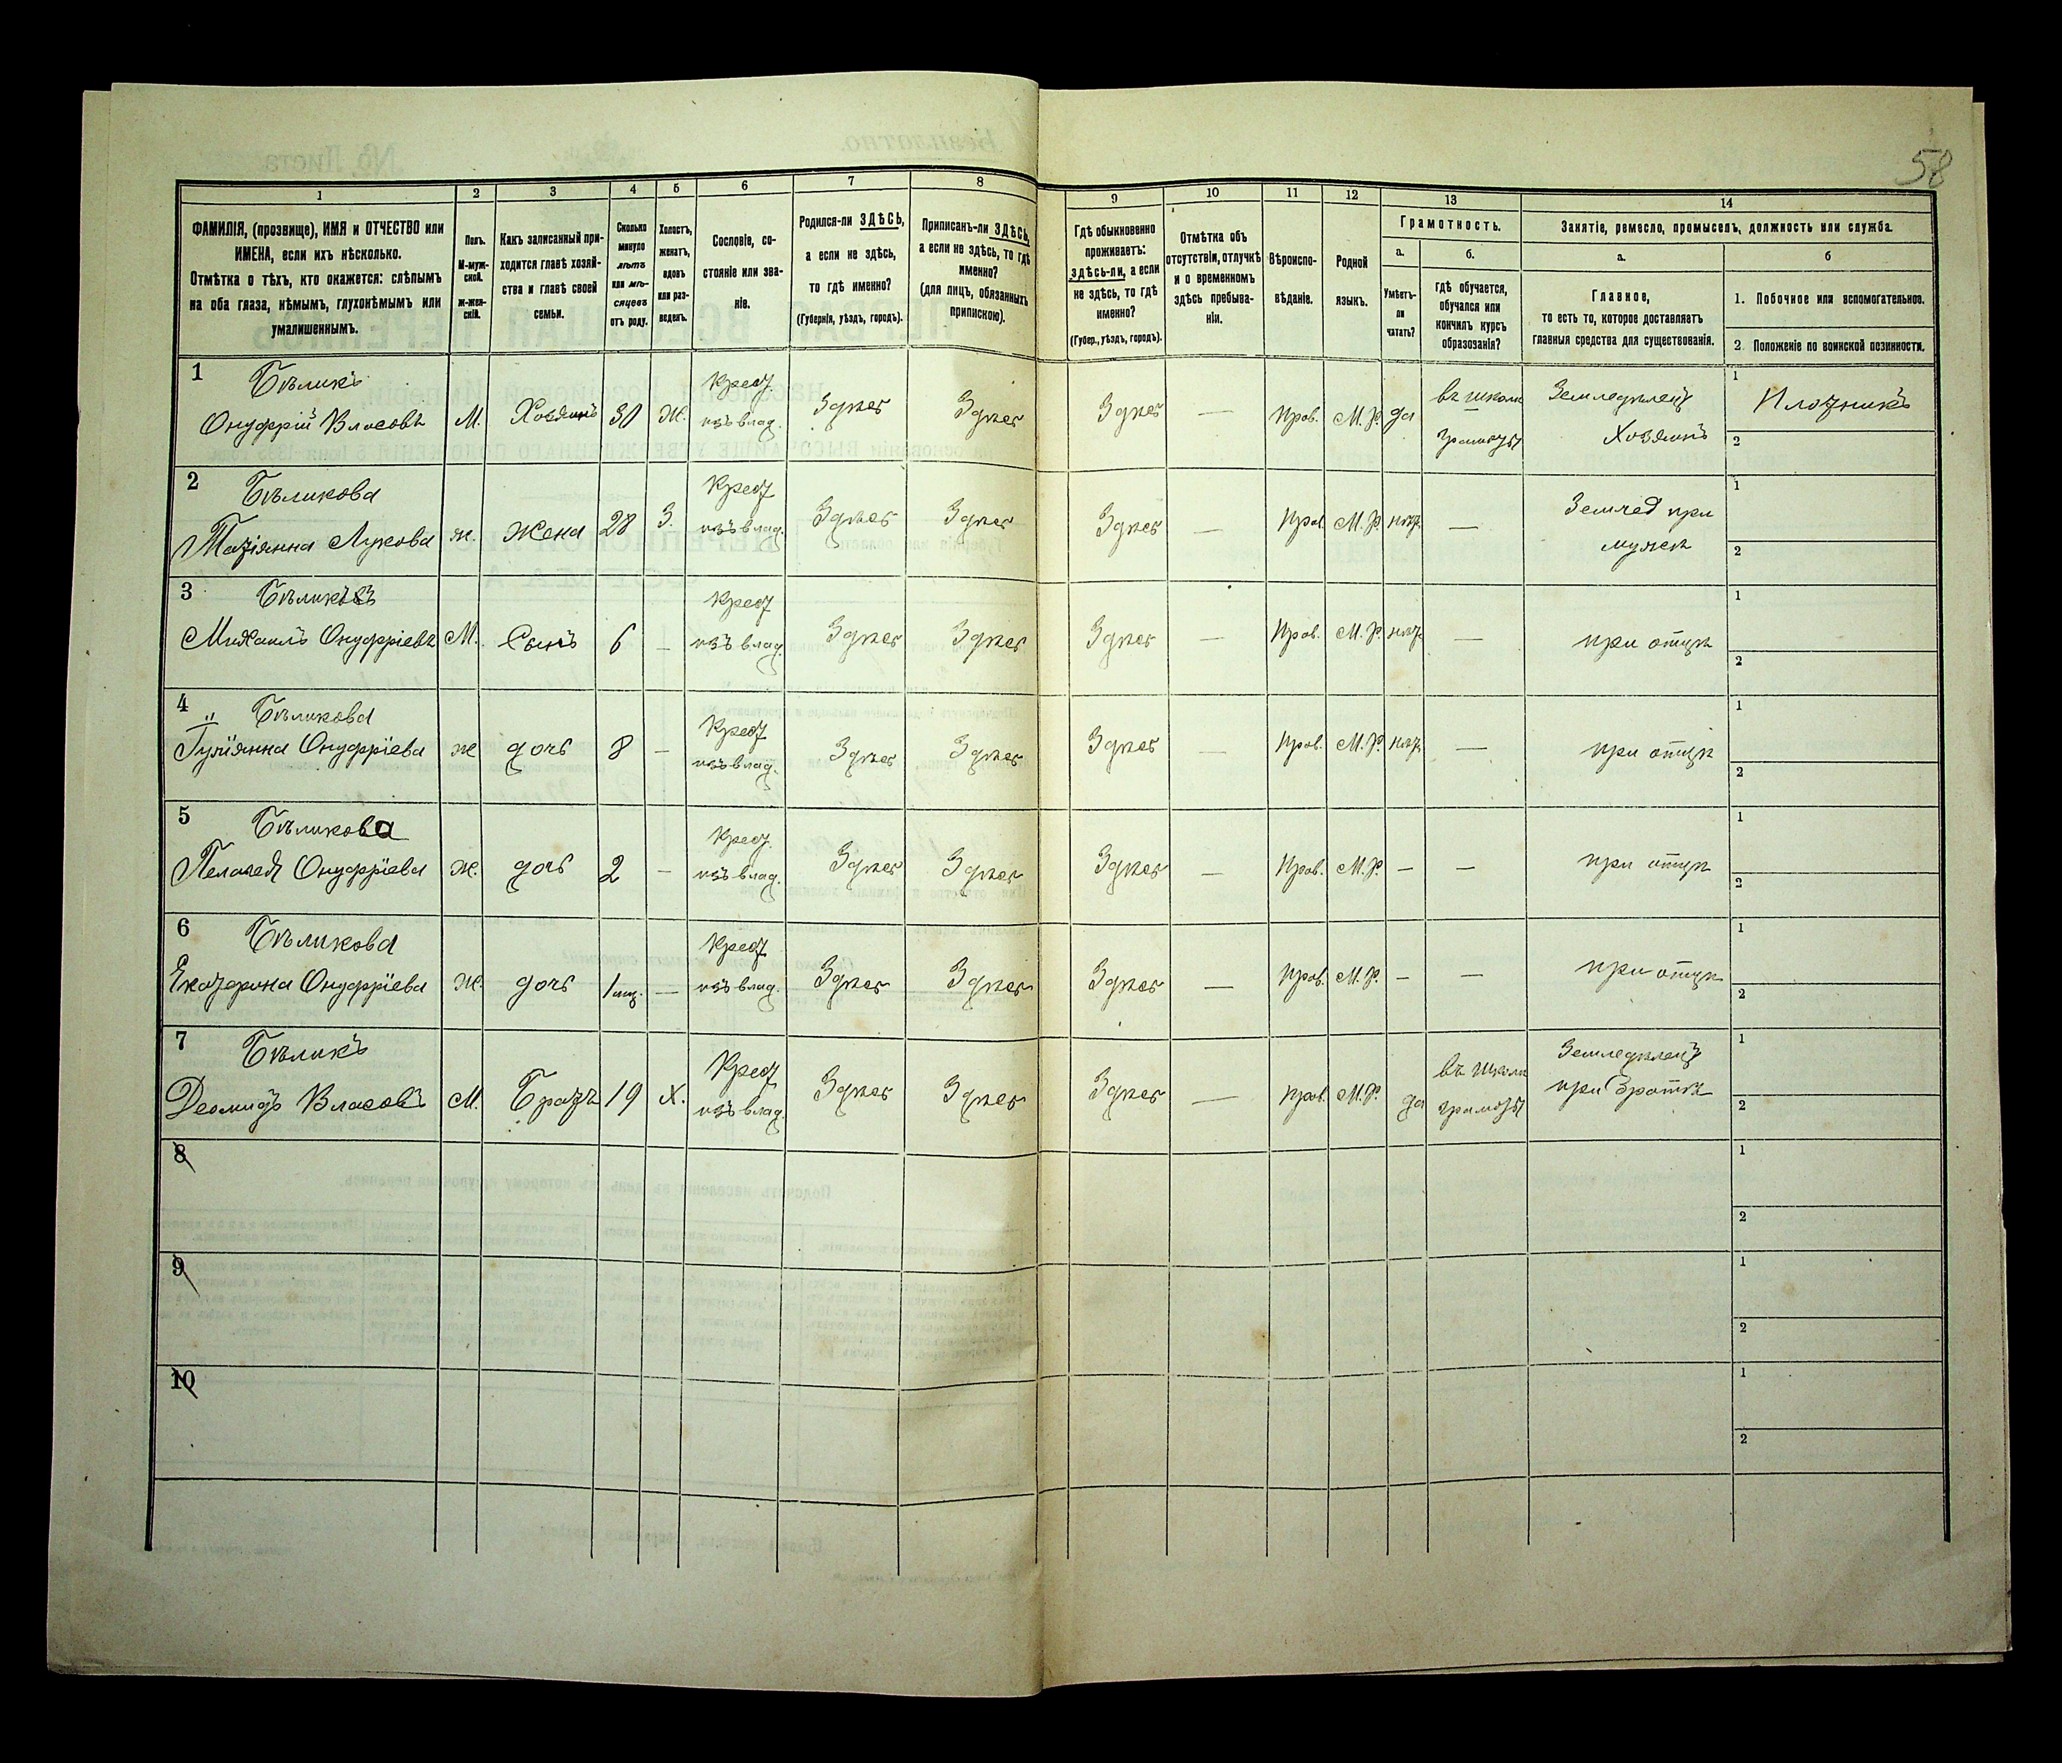 58
1 2 3 4 5 6 7 8 9 10 11 12 13 14
ФАМИЛІЯ, (прозвище), ИМЯ и ОТЧЕСТВО или
ИМЕНА, если ихъ нѣсколько.
Отмѣтка о тѣхъ, кто окажется: слѣпымъ
на оба глаза, нѣмымъ, глухонѣмымъ или
умалишеннымъ.
Полъ.
М-муж-
ской.
ж-жен-
скій.
Какъ записанный при-
ходится главѣ хозяй-
ства и главѣ своей
семьи.
Сколько
минуло
лѣтъ
или мѣ-
сяцевъ
отъ роду.
Холостъ,
женатъ,
вдовъ
или раз-
веденъ.
Сословіе, со-
стояніе или зва-
ніе.
Родился-ли ЗДѢСЬ,
а если не здѣсь,
то гдѣ именно?
(Губернія, уѣздъ, городъ).
Приписанъ-ли ЗДѢСЬ,
а если не здѣсь, то гдѣ
именно?
(для лицъ, обязанныхъ
припискою).
Гдѣ обыкновенно
проживаетъ:
здѣсь-ли, а если
не здѣсь, то гдѣ
именно?
(Губер., уѣздъ, городъ).
Отмѣтка объ
отсутствіи, отлучкѣ
и о временномъ
здѣсь пребыва-
ніи.
Вѣроиспо-
вѣданіе.
Родной
языкъ.
Грамотность.
а.
Умѣетъ-
ли
читать?
б.
гдѣ обучается,
обучался или
кончилъ курсъ
образованія?
Занятіе, ремесло, промыселъ, должность или служба.
а.
Главное,
то есть то, которое доставляетъ
главныя средства для существованія.
б
1. Побочное или вспомогательное.
2. Положеніе по воинской повинности.
1 Бѣликъ Крест. въ школѣ Земледѣлецъ 1
Онуфрій Власовъ М. Хозяинъ 30 Ж. изъ влад. Здѣсь Здѣсь Здѣсь — Прав. М.Р. да грамоты Хозяинъ Плотникъ
2
2 Бѣликова Крест 1
Татіянна Лукова ж. жена 28 З. изъ влад. Здѣсь Здѣсь Здѣсь — Прав. М.Р. нѣт. — Землед при
мужѣ 2
3 Бѣликовъ Крест 1
Михаилъ Онуфріевъ М. Сынъ 6 — изъ влад. Здѣсь Здѣсь Здѣсь — Прав. М.Р. нѣт. — при отцѣ
2
4 Бѣликова Крест 1
Гулиянна Онуфріева ж дочь 8 — изъ влад. Здѣсь Здѣсь Здѣсь — Прав. М.Р. нѣт. — при отцѣ
2
5 Бѣликова Крест. 1
Пелагея Онуфріева ж. дочь 2 — изъ влад. Здѣсь Здѣсь Здѣсь — Прав. М.Р. — — при отцѣ
2
6 Бѣликова Крест 1
Екатерина Онуфріева ж. дочь 1 мц. — изъ влад. Здѣсь Здѣсь Здѣсь — Прав. М.Р. — — при отцѣ
2
7 Бѣликъ Крест въ школѣ Земледѣлецъ 1
Деомидъ Власовъ М. Братъ 19 Х. изъ влад. Здѣсь Здѣсь Здѣсь — Прав. М.Р. да грамоты при братѣ
2
8 1
2
9 1
2
10 1
2